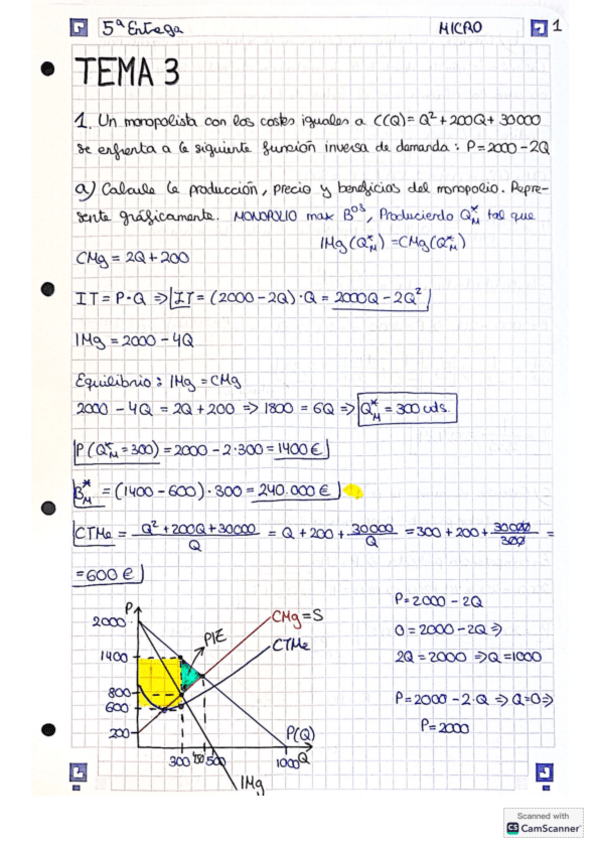 5ª Entrega MICRO 1
TEMA 3
1. Un monopolista con los costes iguales a C(Q) = Q² + 200Q + 30000
se enfrenta a la siguiente función inversa de demanda: P = 2000 - 2Q
a) Calcule la producción, precio y beneficios del monopolio. Repre-
sente gráficamente. MONOPOLIO max Bᵒˢ, Produciendo Q*M tal que
IMg(Q*M) = CMg(Q*M)
CMg = 2Q + 200
IT = P·Q ⇒ IT = (2000 - 2Q)·Q = 2000Q - 2Q²
IMg = 2000 - 4Q
Equilibrio: IMg = CMg
2000 - 4Q = 2Q + 200 ⇒ 1800 = 6Q ⇒ Q*M = 300 uds.
P(Q*M = 300) = 2000 - 2·300 = 1400€
B*M = (1400 - 600)·300 = 240.000€
CTMe = Q² + 200Q + 30000 / Q = Q + 200 + 30000/Q = 300 + 200 + 30000/300 =
= 600€
P
2000
1400
800
600
200
PIE
CMg = S
CTMe
P(Q)
300 450 500 1000 Q
IMg
P = 2000 - 2Q
0 = 2000 - 2Q ⇒
2Q = 2000 ⇒ Q = 1000
P = 2000 - 2·Q ⇒ Q = 0 ⇒
P = 2000
Scanned with
CS CamScanner